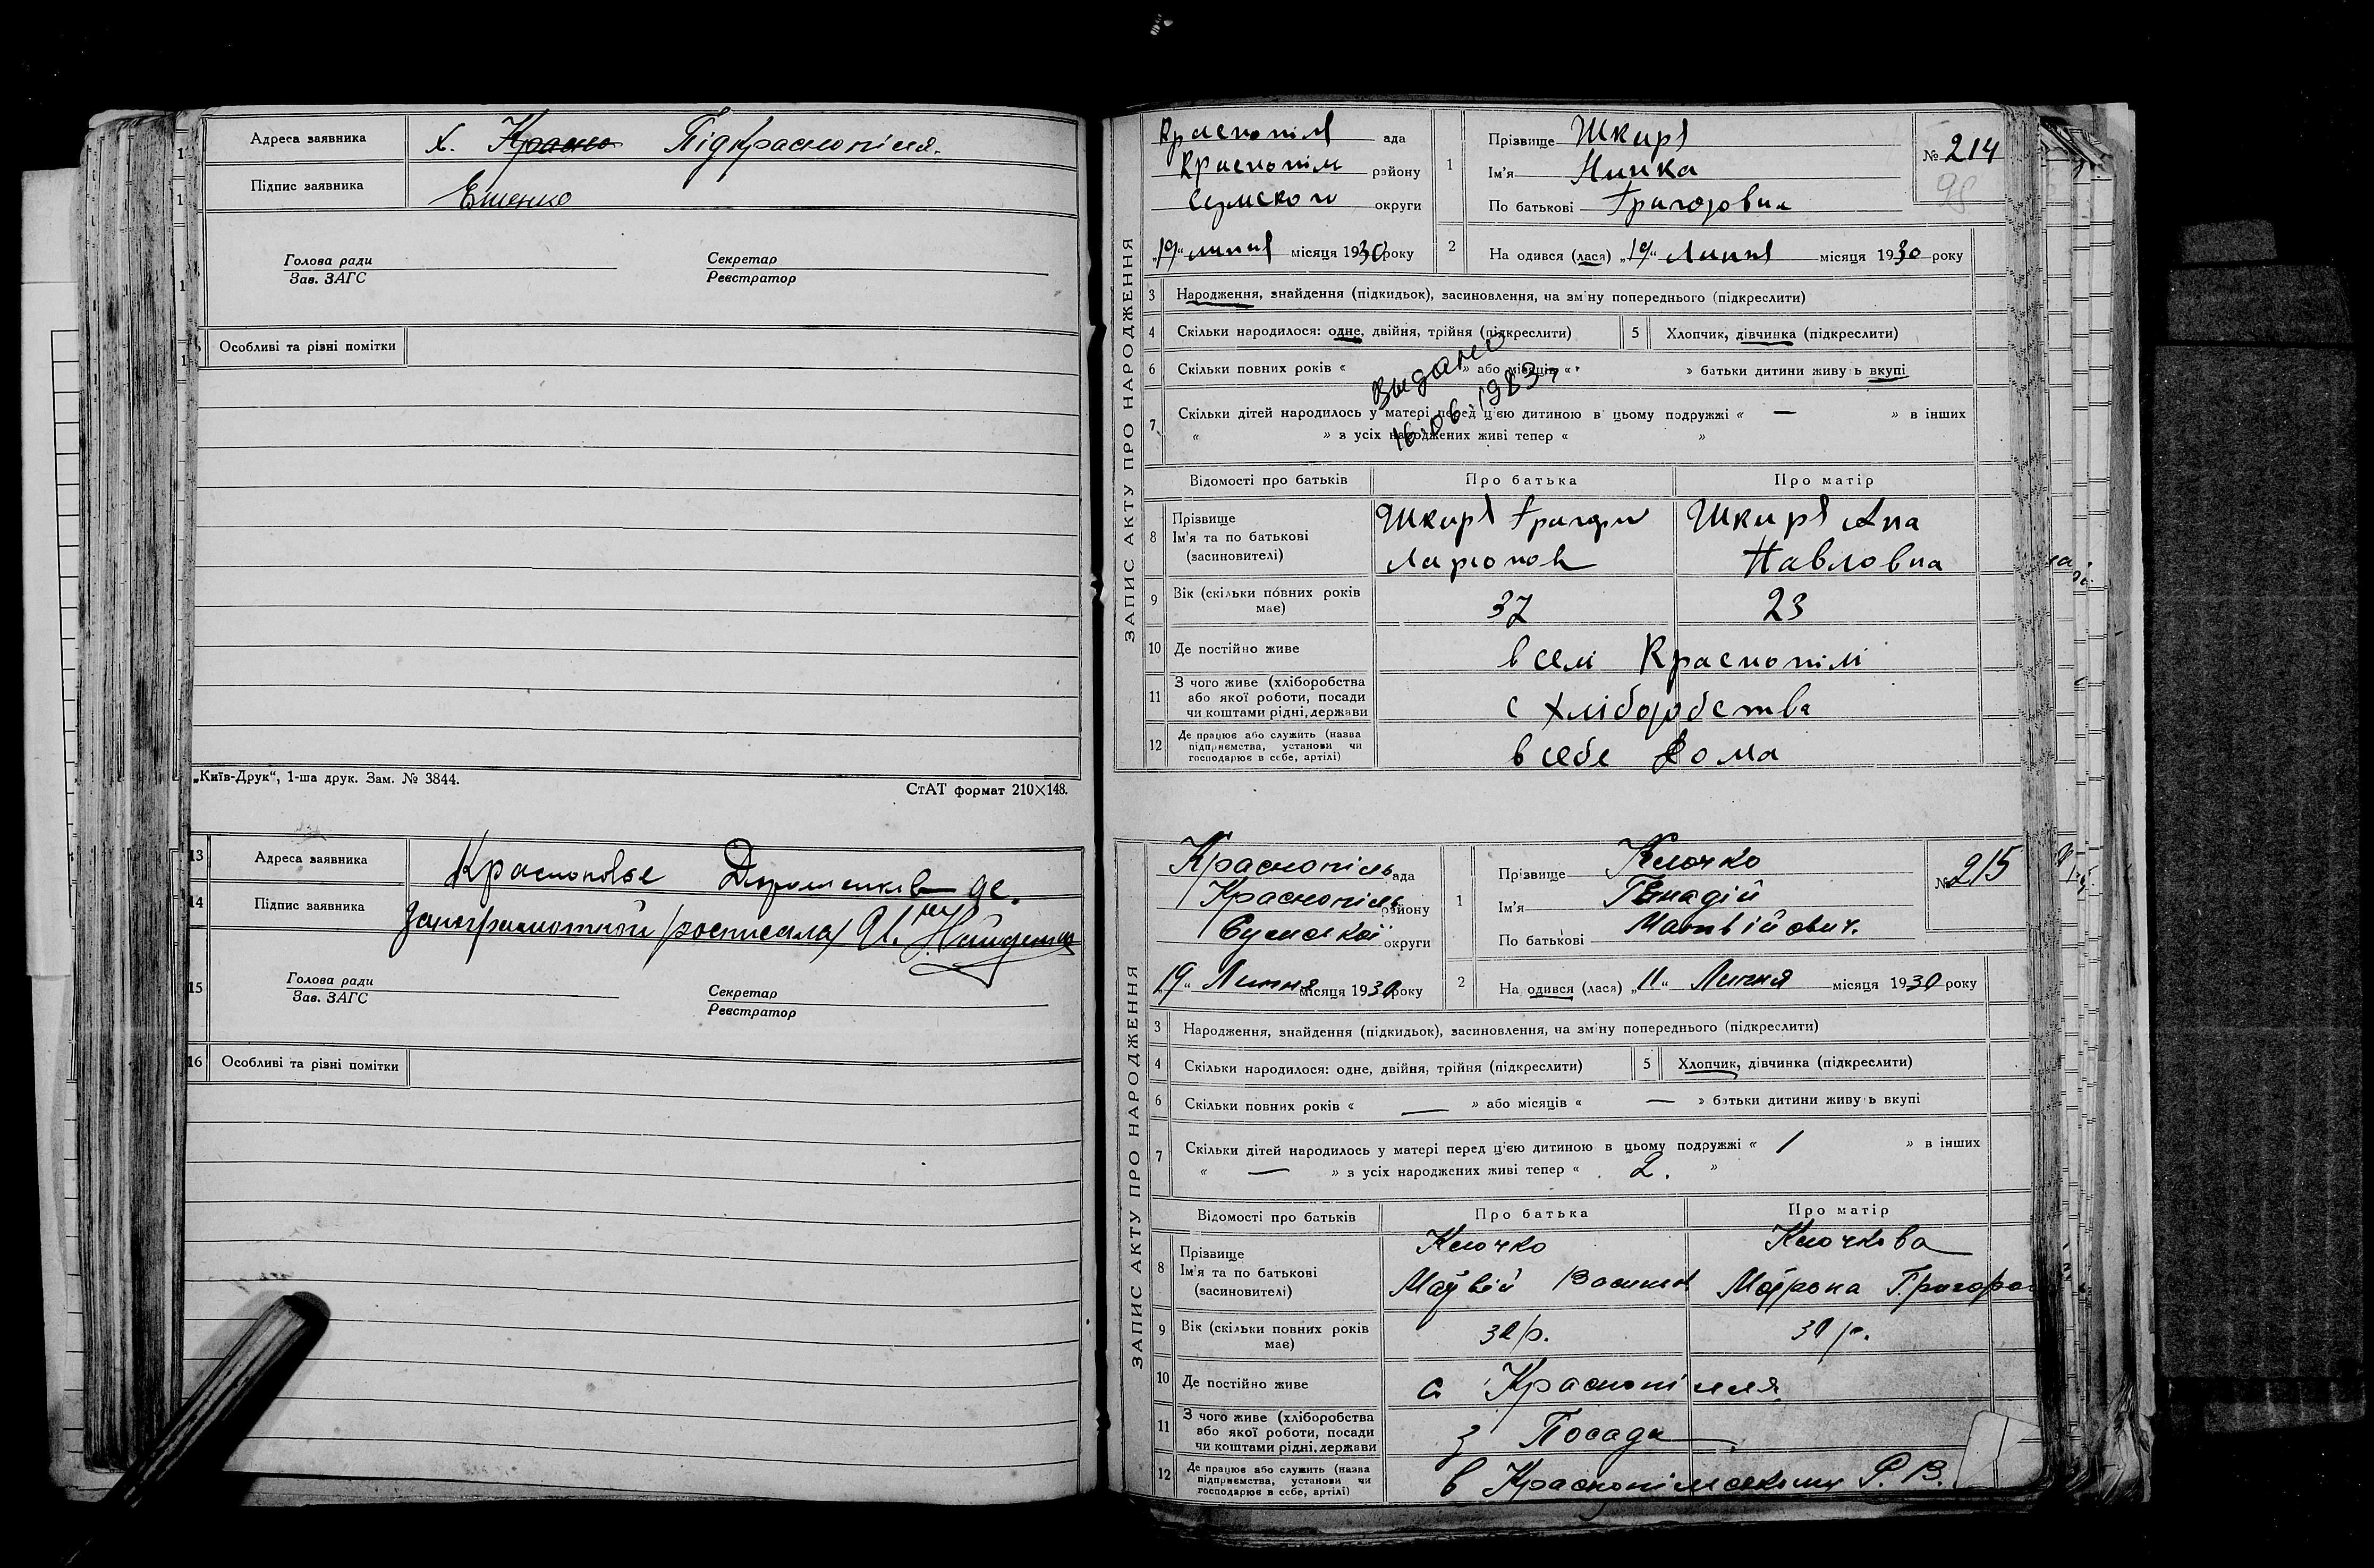 Адреса заявника
х. Красно Підкраснопілля.
Підпис заявника
Ещенко
Голова ради
Зав. ЗАГС
Секретар
Реєстратор
Особливі та різні помітки
„Київ-Друк“, 1-ша друк. Зам. № 3844.
СтАТ формат 210×148.
13
Адреса заявника
Краснополье
14
Підпис заявника
15
Голова ради
Зав. ЗАГС
Секретар
Реєстратор
16
Особливі та різні помітки
ЗАПИС АКТУ ПРО НАРОДЖЕННЯ
Краснопіл ада
Краснопіл району
Сумської округи
„19“ липня місяця 1930 року
1
Прізвище Шкиря
Ім'я Нинка
По батькові Григоровна
№ 214
98
2
На одився (лася) „19“ Липня місяця 1930 року
3 Народження, знайдення (підкидьок), засиновлення, на зміну попереднього (підкреслити)
4 Скільки народилося: одне, двійня, трійня (підкреслити)
5 Хлопчик, дівчинка (підкреслити)
6 Скільки повних років « » або місяців « » батьки дитини живуь вкупі
Выдано
16.06.1983
7 Скільки дітей народилось у матері перед ц'єю дитиною в цьому подружжі « — » в інших
« » з усіх народжених живі тепер « »
Відомості про батьків
Про батька
Про матір
8
Прізвище
Ім'я та по батькові
(засиновителі)
Шкиря Григорий
Ларионов
Шкиря Ана
Павловна
9
Вік (скільки повних років
має)
37
23
10 Де постійно живе
в селі Краснопілі
11
З чого живе (хліборобства
або якої роботи, посади
чи коштами рідні, держави
с хліборобства
12
Де працює або служить (назва
підприємства, установи чи
господарює в себе, артілі)
в себе дома
ЗАПИС АКТУ ПРО НАРОДЖЕННЯ
Краснопіль ада
Краснопіль району
Сумської округи
„19“ Липня місяця 1930 року
1
Прізвище Клочко
Ім'я Генадій
По батькові Матвійович.
№ 215
2
На одився (лася) „11“ Липня місяця 1930 року
3 Народження, знайдення (підкидьок), засиновлення, на зміну попереднього (підкреслити)
4 Скільки народилося: одне, двійня, трійня (підкреслити)
5 Хлопчик, дівчинка (підкреслити)
6 Скільки повних років « — » або місяців « — » батьки дитини живуь вкупі
7 Скільки дітей народилось у матері перед ц'єю дитиною в цьому подружжі « 1 » в інших
« — » з усіх народжених живі тепер « 2. »
Відомості про батьків
Про батька
Про матір
8
Прізвище
Ім'я та по батькові
(засиновителі)
Клочко
Матвій Васильов
Клочкова
Мотрона
9
Вік (скільки повних років
має)
30 р.
30 р.
10 Де постійно живе
с. Краснопілля
11
З чого живе (хліборобства
або якої роботи, посади
чи коштами рідні, держави
з Посади
12
Де працює або служить (назва
підприємства, установи чи
господарює в себе, артілі)
в Краснопільському Р. В.